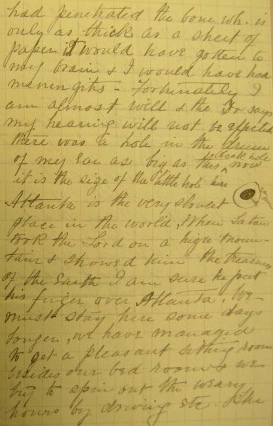 had penetrated the bone wh. is
only as thick as a sheet of
paper it would have gotten to
my brain & I would have had
meningitis - fortunately I
am almost well & the Dr says
my hearing will not be affected
there was a hole in the drum
of my Ear as big as this, now
it is the size of the little hole in
Atlanta is the very slowest
place in the world, When Satan
took the Lord on a high moun-
tain & showed him the treasures
of the Earth I am sure he put
his finger over Atlanta. We
must stay here some days
longer, we have managed
to get a pleasant sitting room
besides our bed room & we
try to spin out the weary
hours by driving etc. The